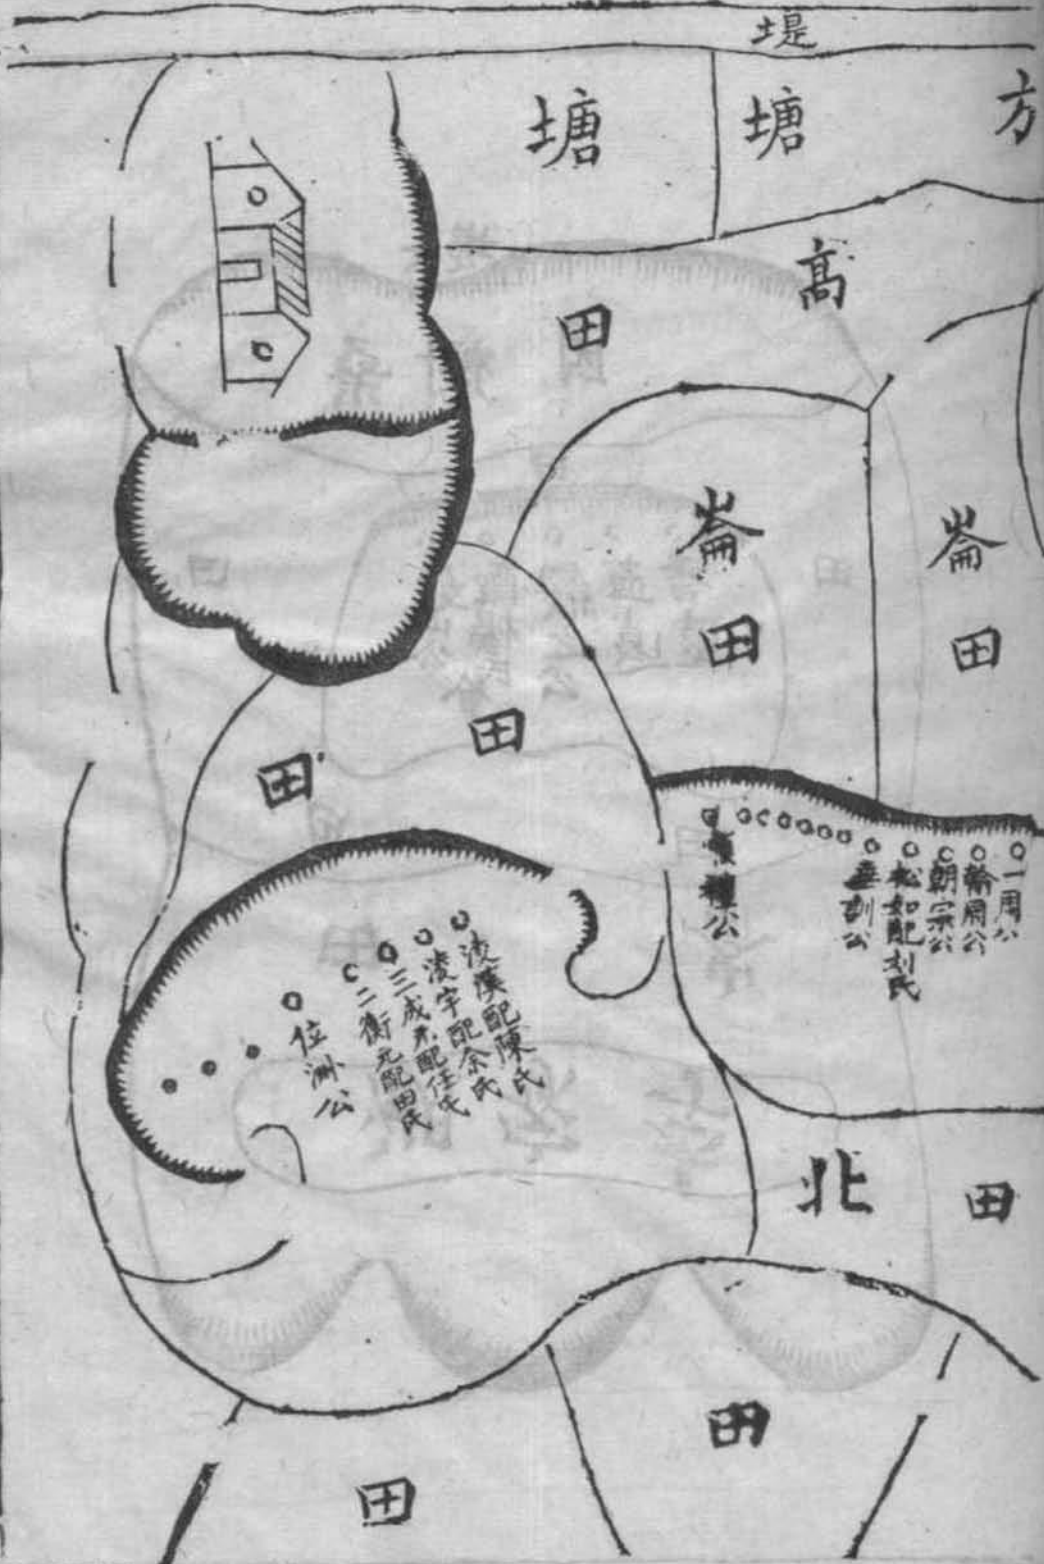 堤
方
塘
塘
高
田
崙田
崙田
田
田
一周公
輪周公
朝宗公
松如配刘氏
垂訓公
禮公
淩漢配陳氏
淩宇配余氏
三成元配任氏
二衡元配田氏
位洲公
北
田
田
田